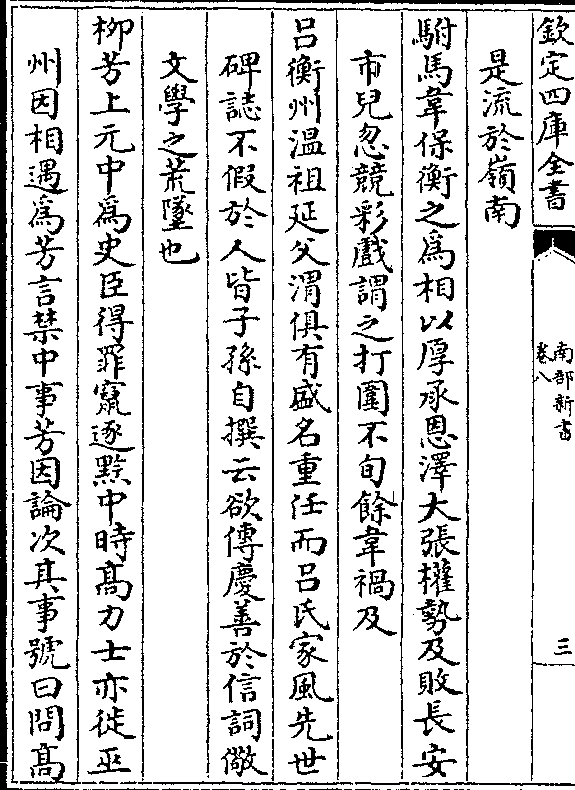 欽定四庫全書
南部新書
卷八
三
是流於嶺南
駙馬韋保衡之為相以厚承恩澤大張權勢及敗長安
市兒忽競彩戲謂之打圍不旬餘韋禍及
呂衡州溫祖延父渭俱有盛名重任而呂氏家風先世
碑誌不假於人皆子孫自撰云欲傳慶善於信詞儆
文學之荒墜也
柳芳上元中為史臣得罪竄逐黔中時高力士亦徙巫
州因相遇為芳言禁中事芳因論次其事號曰問高